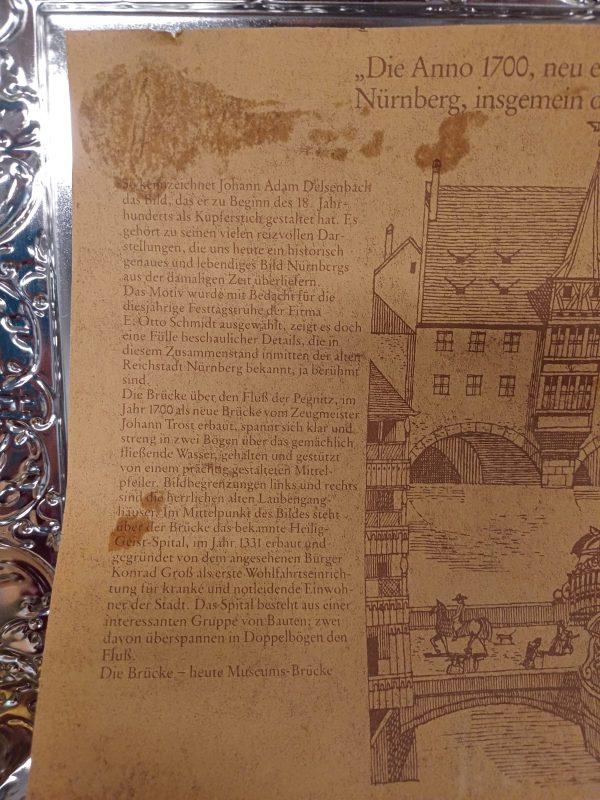 „Die Anno 1700, neu e
Nürnberg, insgemein d
So kennzeichnet Johann Adam Delsenbach
das Bild, das er zu Beginn des 18. Jahr-
hunderts als Kupferstich gestaltet hat. Es
gehört zu seinen vielen reizvollen Dar-
stellungen, die uns heute ein historisch
genaues und lebendiges Bild Nürnbergs
aus der damaligen Zeit überliefern.
Das Motiv wurde mit Bedacht für die
diesjährige Festtagstruhe der Firma
E. Otto Schmidt ausgewählt, zeigt es doch
eine Fülle beschaulicher Details, die in
diesem Zusammenstand inmitten der alten
Reichstadt Nürnberg bekannt, ja berühmt
sind.
Die Brücke über den Fluß der Pegnitz, im
Jahr 1700 als neue Brücke vom Zeugmeister
Johann Trost erbaut, spannt sich klar und
streng in zwei Bögen über das gemächlich
fließende Wasser, gehalten und gestützt
von einem prächtig gestalteten Mittel-
pfeiler. Bildbegrenzungen links und rechts
sind die herrlichen alten Laubengang-
häuser. Im Mittelpunkt des Bildes steht
über der Brücke das bekannte Heilig-
Geist-Spital, im Jahr 1331 erbaut und
gegründet von dem angesehenen Bürger
Konrad Groß als erste Wohlfahrtseinrich-
tung für kranke und notleidende Einwoh-
ner der Stadt. Das Spital besteht aus einer
interessanten Gruppe von Bauten; zwei
davon überspannen in Doppelbögen den
Fluß.
Die Brücke – heute Museums-Brücke